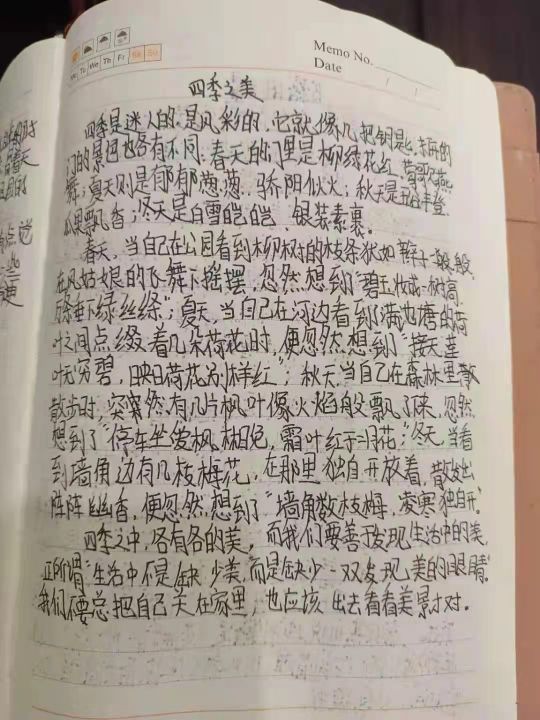 Memo No.
Date
Mo Tu We Th Fr Sa Su
四季之美
四季是迷人的,是风彩的,它就像几把钥匙,打开的
门的景色也各有不同,春天的门里是柳绿花红,莺歌燕
舞;夏天则是郁郁葱葱,骄阳似火;秋天是五谷丰登,
瓜果飘香;冬天是白雪皑皑,银装素裹。
春天,当自己在公园看到柳树的枝条犹如辫子一般般
在风姑娘的飞舞下摇摆,忽然想到"碧玉妆成一树高,
万条垂下绿丝绦";夏天,当自己在河边看到满池塘的荷
叶之间点缀着几朵荷花时,便忽然想到"接天莲
叶无穷碧,映日荷花别样红;秋天,当自己在森林里散
散步时,突然有几片枫叶像火焰般飘了来,忽然
想到了"停车坐爱枫林晚,霜叶红于二月花";冬天,当看
到墙角边有几枝梅花,在那里独自开放着,散发出
阵阵幽香,便忽然想到了"墙角数枝梅,凌寒独自开"。
四季之中,各有各的美,而我们要善于发现生活中的美,
正所谓"生活中不是缺少美,而是缺少一双发现美的眼睛"。
我们不要总把自己关在家里,也应该出去看看美景才对。